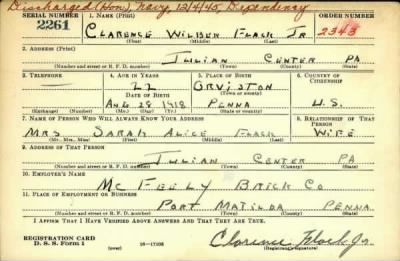 Discharged (Hon) Navy 12/4/45 Dependency
SERIAL NUMBER 1. NAME (Print) ORDER NUMBER
2261 CLARENCE WILBER FLACK JR 2343
(First) (Middle) (Last)
2. ADDRESS (Print)
JULIAN CENTER PA
(Number and street or R. F. D. number) (Town) (County) (State)
3. TELEPHONE 4. AGE IN YEARS 5. PLACE OF BIRTH 6. COUNTRY OF CITIZENSHIP
— 22 ORVISTON
DATE OF BIRTH (Town or county)
AUG 28 1918 PENNA U.S.
(Exchange) (Number) (Mo.) (Day) (Yr.) (State or country)
7. NAME OF PERSON WHO WILL ALWAYS KNOW YOUR ADDRESS 8. RELATIONSHIP OF THAT PERSON
MRS SARAH ALICE FLACK WIFE
(Mr., Mrs., Miss) (First) (Middle) (Last)
9. ADDRESS OF THAT PERSON
JULIAN CENTER PA
(Number and street or R. F. D. number) (Town) (County) (State)
10. EMPLOYER'S NAME
MC FEELY BRICK CO
11. PLACE OF EMPLOYMENT OR BUSINESS
PORT MATILDA PENNA
(Number and street or R. F. D. number) (Town) (County) (State)
I AFFIRM THAT I HAVE VERIFIED ABOVE ANSWERS AND THAT THEY ARE TRUE.
REGISTRATION CARD
D. S. S. Form 1 (over) 16—17105 Clarence Flack Jr
(Registrant's signature)